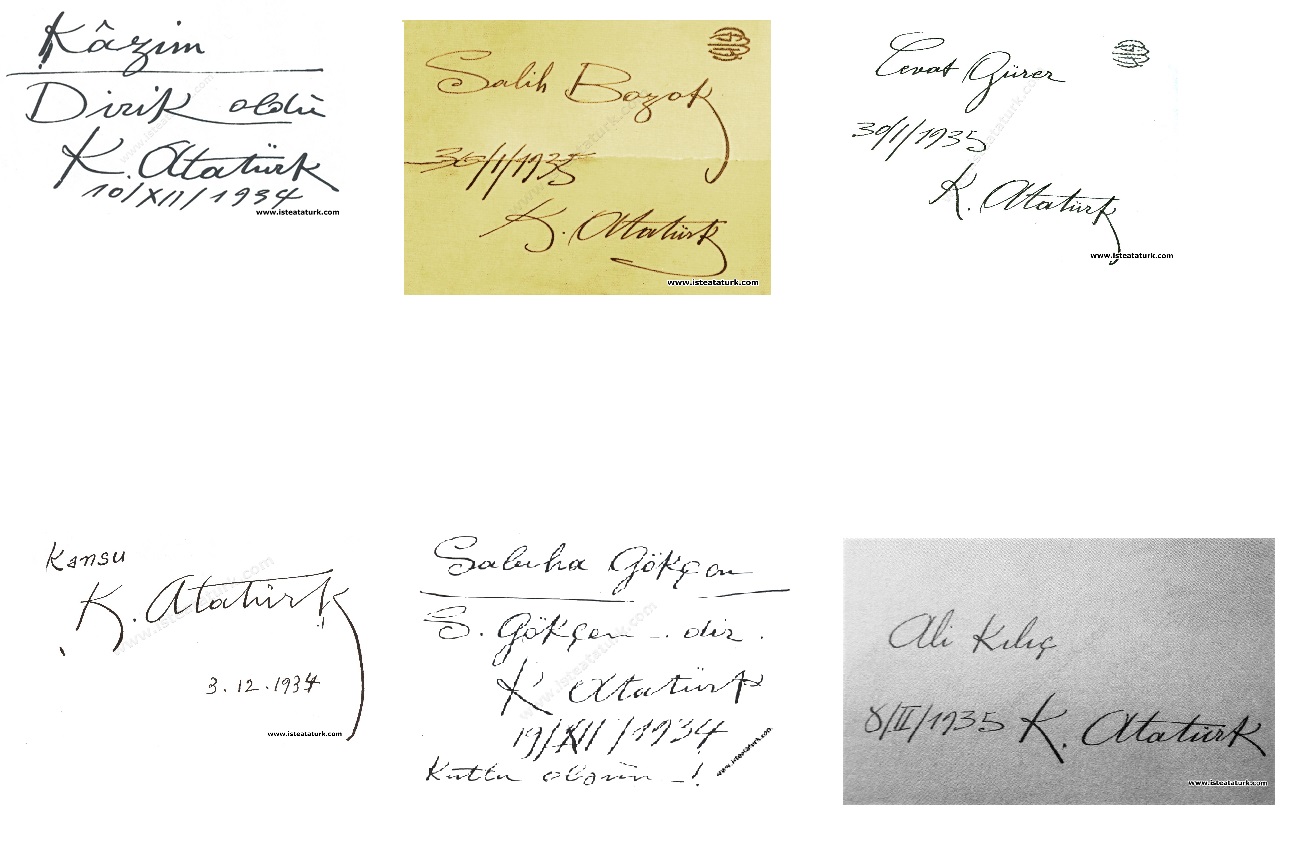 Kâzim
Dirik oldu
K. Atatürk
10/XII/1934
www.isteataturk.com
Salih Bozok
30/I/1935
K. Atatürk
www.isteataturk.com
Cevat Gürer
30/I/1935
K. Atatürk
www.isteataturk.com
Kansu
K. Atatürk
3.12.1934
www.isteataturk.com
Sabiha Gökçen
S. Gökçen - dir.
K Atatürk
19/XII/1934
Kutlu olsun - !
www.isteataturk.com
Ali Kılıç
8/II/1935 K. Atatürk
www.isteataturk.com